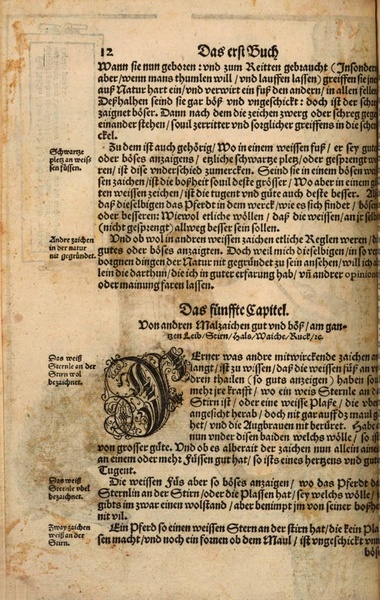 12 Das erst Buch
Wann sie nun geboren: vnd zum Reitten gebraucht (Insonder
aber/wenn mans thumlen will/ vnd lauffen lassen) greiffen sie jne
auß Natur hart ein/ vnd verwirt ein fuß den andern/ in allen fellen
Deßhalben seind sie gar böß vnd vngeschickt: doch ist der schre
zaignet böser. Dann nach dem die zeichen zwerg oder schreg gege
einander stehen/ souil zerritter vnd sorglicher greiffens in die schen
ckel.
Schwartze
pletz an weis
sen füssen.
Zu dem ist auch gehörig/ Wo in einem weissen fuß/ er sey gute
oder böses anzeigens/ etzliche schwartze pletz/oder gesprengt wo
ren/ ist dise vnderschid zumercken. Seind sie in einem bösen we
sen zaichen/ ist die boßheit souil deste grösser/ Wo aber in einem gu
ten weissen zeichen/ ist die tugent vnd güte auch deste besser. Al
daß dieselbigen das Pferdt in dem werck/ wie es sich findet/ böser
oder besseren: Wiewol etliche wöllen/ daß die weissen/an jr selb
(nicht gesprengt) allweg besser sein sollen.
Ander zaichen
in der natur
nit gegründet.
Vnd ob wol in andren weissen zaichen etliche Reglen weren/ de
gutes oder böses anzaigten. Doch weil mich dieselbigen/ in so ver
borgnen dingen der Natur nit gegründet zu sein ansehen/ will ich al
lein die darthun/ die ich in guter erfarung hab/ vñ andrer opinion
oder mainung faren lassen.
Das fünffte Capitel.
Von andren Malzaichen gut vnd böß/ am gan-
tzen Leib/ Stirn/ Hals/ Waiche/ Ruck/ ꝛc.
Das weiß
Sternle an der
Stirn wol
bezeichnet.
FErner was andre mitwirckende zaichen an
langt/ ist zu wissen/ daß die weissen füß an v
dren thailen (so guts anzeigen) haben sou
mehr jre krafft/ wo ein weis Sternle an de
Stirn ist/ oder eine weisse Plaße/ die vber
angesicht herab/ doch nit gar auff dz maul g
het/ vnd die Augbrauen nit berüret. Habe
nun vnder disen baiden welchs wölle/ so is
von grosser güte. Vnd ob es alberait der zaichen nun allein aine
an einem oder mehr Füssen gut hat/ so ists eines hertzens vnd gute
Tugent.
Das weiß
Sternle vbel
bezeichnet.
Die weissen Füs aber so böses anzeigen/ wo das Pferdt da
Sternlin an der Stirn/oder die Plassen hat/ sey welchs wölle/
gibts im zwar einen wolstand/ aber benimpt jm von seiner boßhe
nit vil.
Zway zaichen
weiß an der
Stirn.
Ein Pferd so einen weissen Stern an der stirn hat/die kein Pla
sen macht/vnd noch ein fornen ob dem Maul/ ist vngeschickt vnn
böse